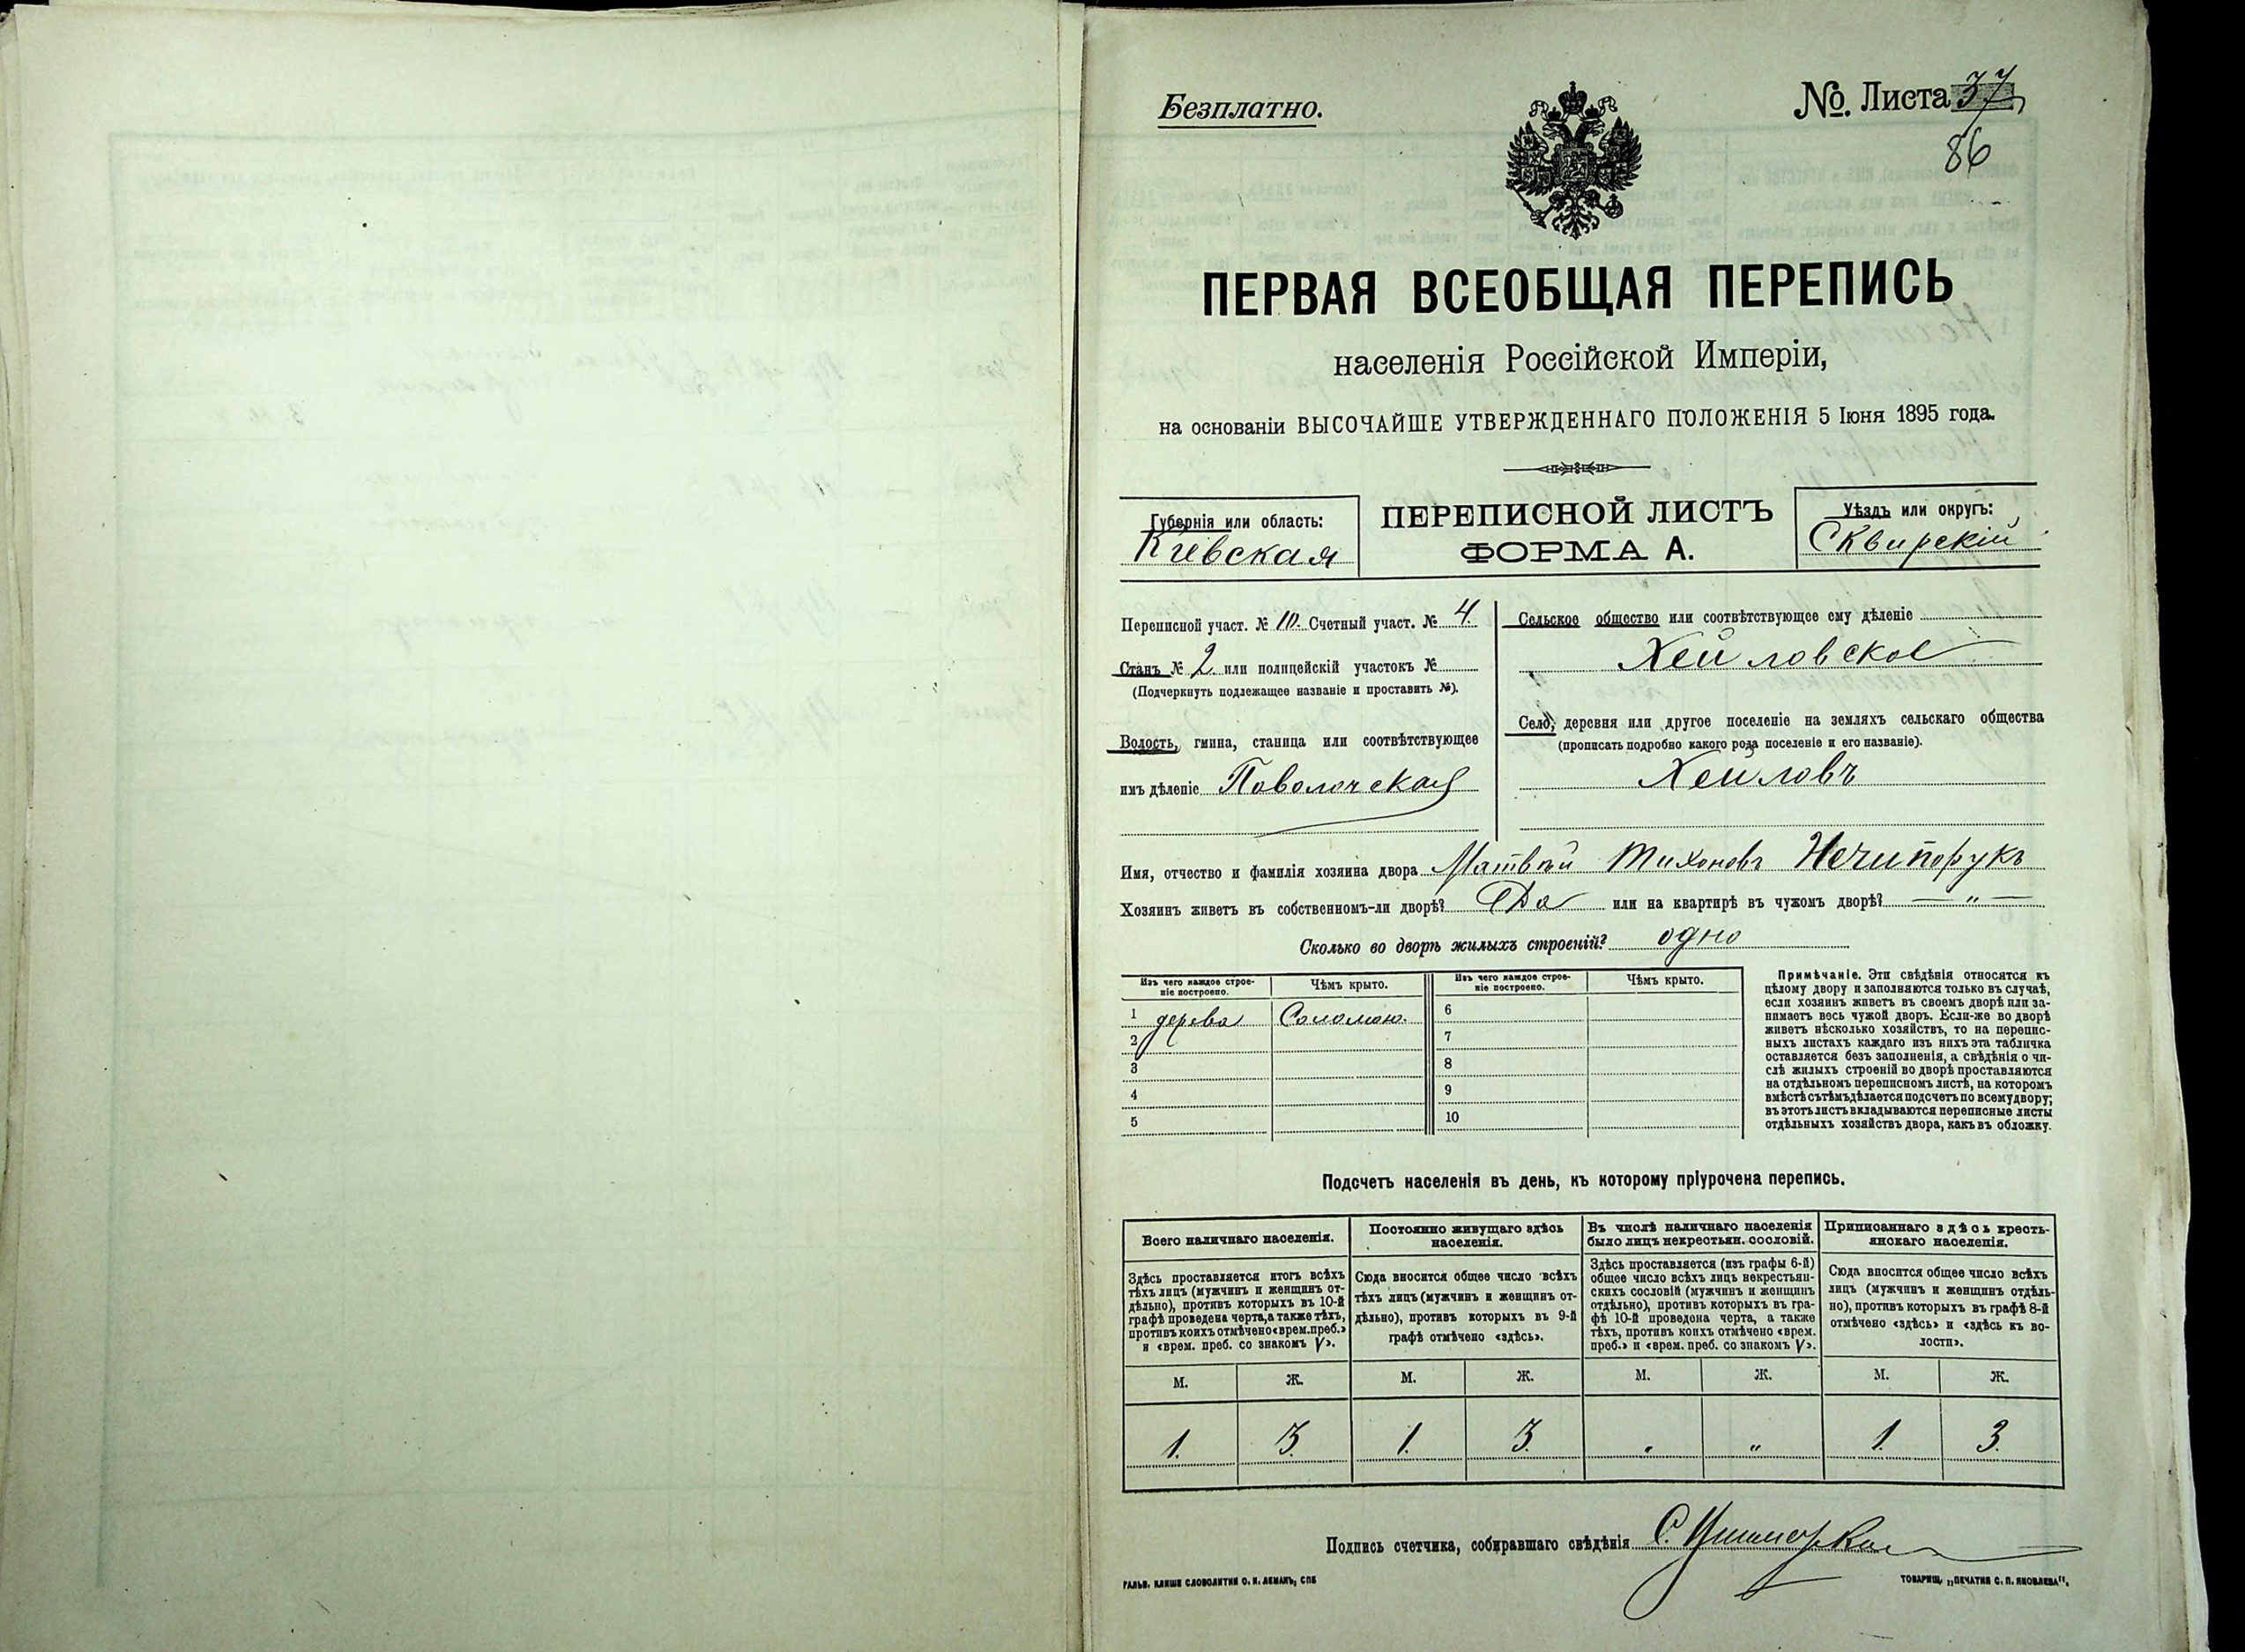 Безплатно.
№. Листа 37
86
ПЕРВАЯ ВСЕОБЩАЯ ПЕРЕПИСЬ
населенія Россійской Имперіи,
на основаніи ВЫСОЧАЙШЕ УТВЕРЖДЕННАГО ПОЛОЖЕНІЯ 5 Іюня 1895 года.
Губернія или область:
Кіевская
ПЕРЕПИСНОЙ ЛИСТЪ
ФОРМА А.
Уѣздъ или округъ:
Сквирскій
Переписной участ. № 10. Счетный участ. № 4.
Станъ № 2 или полицейскій участокъ №
(Подчеркнуть подлежащее названіе и проставить №).
Волость, гмина, станица или соотвѣтствующее
имъ дѣленіе Поволочская
Сельское общество или соотвѣтствующее ему дѣленіе
Хейловское
Село, деревня или другое поселеніе на земляхъ сельскаго общества
(прописать подробно какого рода поселеніе и его названіе).
Хейловъ
Имя, отчество и фамилія хозяина двора Матвѣй Тихоновъ Нечипорукъ
Хозяинъ живетъ въ собственномъ-ли дворѣ? Да или на квартирѣ въ чужомъ дворѣ? — „ —
Сколько во дворѣ жилыхъ строеній? одно
Изъ чего каждое строе-
ніе построено.
Чѣмъ крыто.
Изъ чего каждое строе-
ніе построено.
Чѣмъ крыто.
1 дерева Соломою. 6
2 7
3 8
4 9
5 10
Примѣчаніе. Эти свѣдѣнія относятся къ
цѣлому двору и заполняются только въ случаѣ,
если хозяинъ живетъ въ своемъ дворѣ или за-
нимаетъ весь чужой дворъ. Если-же во дворѣ
живетъ нѣсколько хозяйствъ, то на перепис-
ныхъ листахъ каждаго изъ нихъ эта табличка
оставляется безъ заполненія, а свѣдѣнія о чи-
слѣ жилыхъ строеній во дворѣ проставляются
на отдѣльномъ переписномъ листѣ, на которомъ
вмѣстѣ съ тѣмъ дѣлается подсчетъ по всему двору;
въ этотъ листъ вкладываются переписные листы
отдѣльныхъ хозяйствъ двора, какъ въ обложку.
Подсчетъ населенія въ день, къ которому пріурочена перепись.
Всего наличнаго населенія.
Здѣсь проставляется итогъ всѣхъ
тѣхъ лицъ (мужчинъ и женщинъ от-
дѣльно), противъ которыхъ въ 10-й
графѣ проведена черта, а также тѣхъ,
противъ коихъ отмѣчено «врем. преб.»
и «врем. преб. со знакомъ V».
Постоянно живущаго здѣсь
населенія.
Сюда вносится общее число всѣхъ
тѣхъ лицъ (мужчинъ и женщинъ от-
дѣльно), противъ которыхъ въ 9-й
графѣ отмѣчено «здѣсь».
Въ числѣ наличнаго населенія
было лицъ некрестьян. сословій.
Здѣсь проставляется (изъ графы 6-й)
общее число всѣхъ лицъ некрестьян-
скихъ сословій (мужчинъ и женщинъ
отдѣльно), противъ которыхъ въ гра-
фѣ 10-й проведена черта, а также
тѣхъ, противъ коихъ отмѣчено «врем.
преб.» и «врем. преб. со знакомъ V».
Приписаннаго здѣсь кресть-
янскаго населенія.
Сюда вносится общее число всѣхъ
лицъ (мужчинъ и женщинъ отдѣль-
но), противъ которыхъ въ графѣ 8-й
отмѣчено «здѣсь» и «здѣсь къ во-
лости».
М. Ж. М. Ж. М. Ж. М. Ж.
1. 3. 1. 3. „ „ 1. 3.
Подпись счетчика, собиравшаго свѣдѣнія С.
ГАЛЬВ. КЛИШЕ СЛОВОЛИТНИ О. И. ЛЕМАНЪ, СПБ
ТОВАРИЩ. „ПЕЧАТНЯ С. П. ЯКОВЛЕВА".